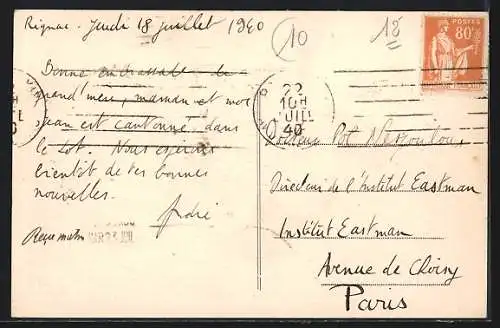 Rignac - Jeudi 18 juillet 1940
10
18
POSTES
80c
Bonne embrassade de
grand'mère, maman et moi
Jean est cantonné dans
le Lot. Nous espérons
bientôt de tes bonnes
nouvelles.
André
22
10H
JUIL
40
Docteur Pot
Directeur de l'Institut Eastman
Institut Eastman
Avenue de Choisy
Paris